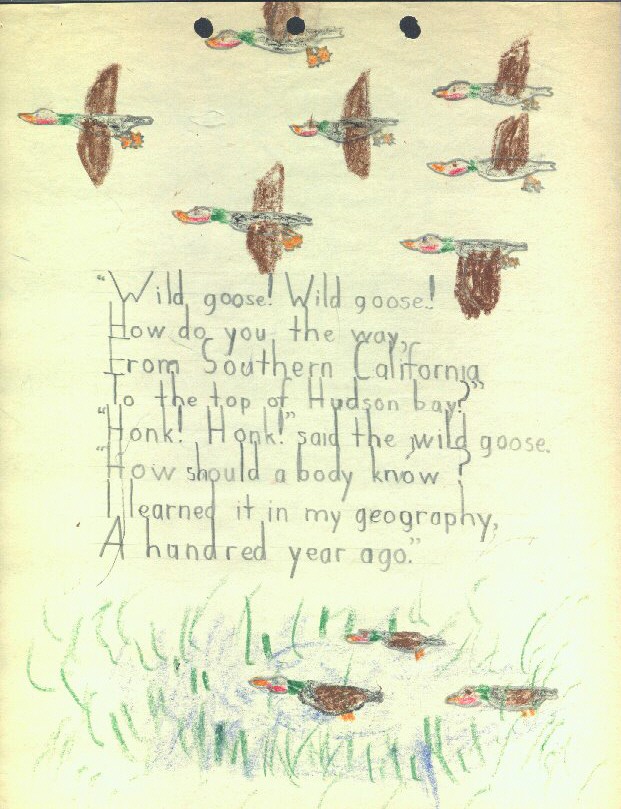 "Wild goose! Wild goose!
How do you the way,
From Southern California
To the top of Hudson bay?"
"Honk! Honk!" said the wild goose.
"How should a body know?
I learned it in my geography,
A hundred year ago."